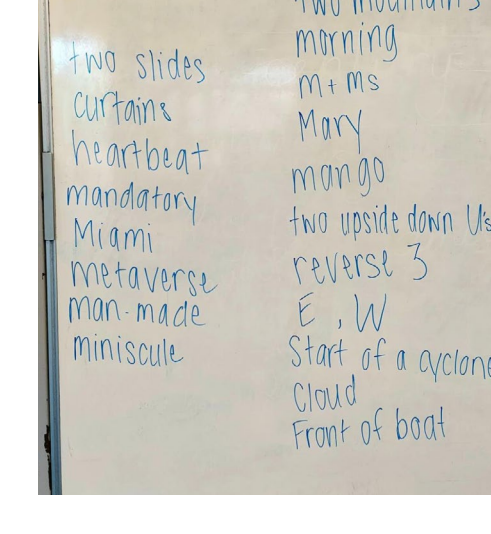 two slides
curtains
heartbeat
mandatory
Miami
metaverse
man-made
miniscule
two mountains
morning
m+ms
Mary
mango
two upside down U's
reverse 3
E, W
Start of a cyclone
Cloud
Front of boat